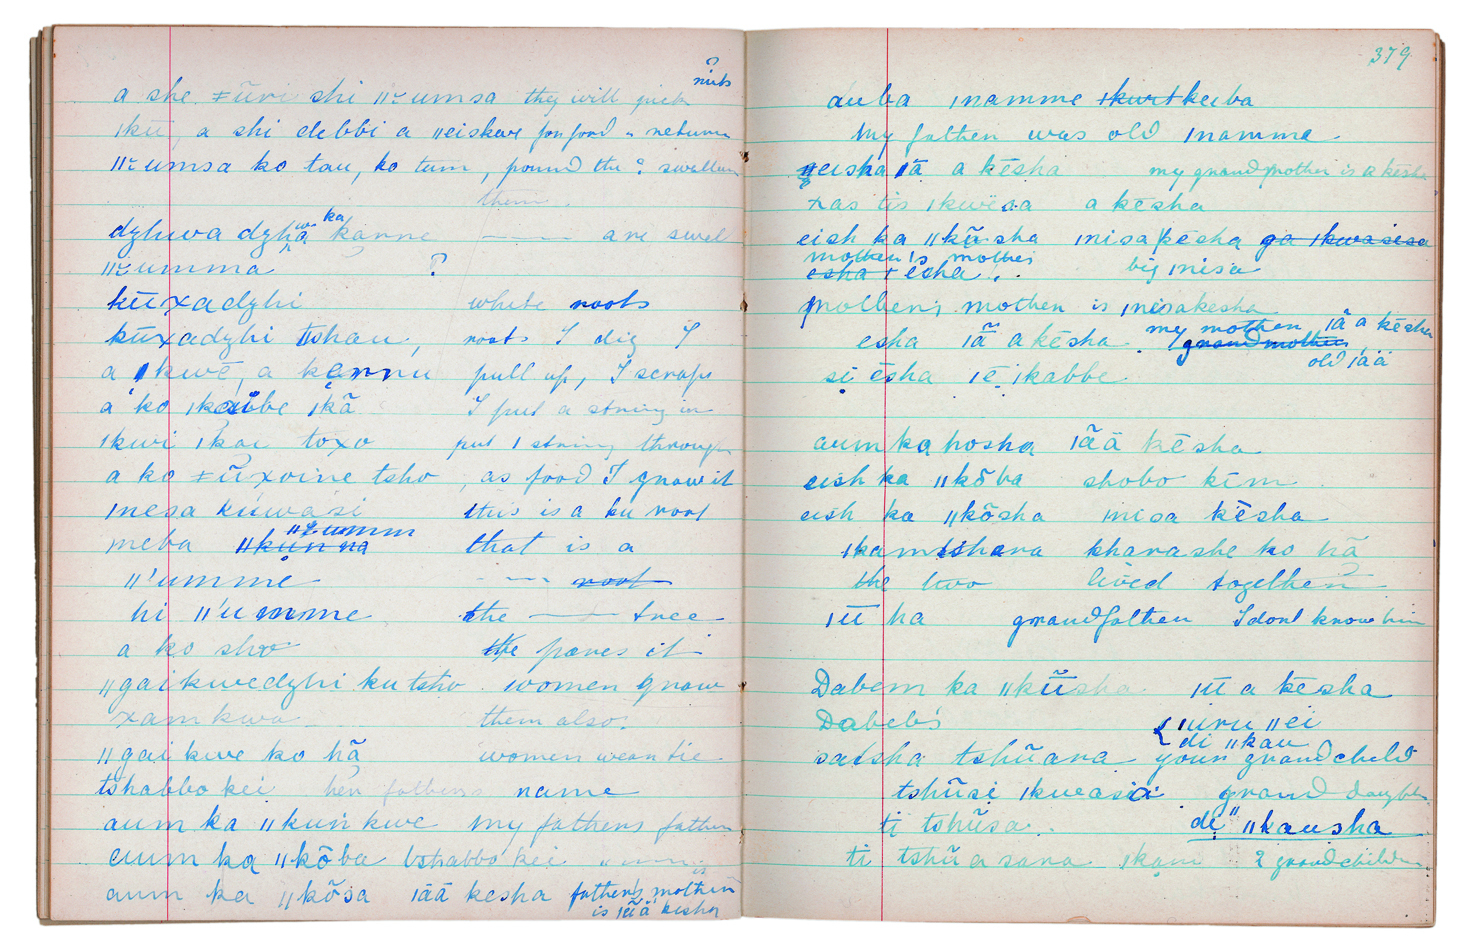 nuts
a she ǂūri shi ǁumsa they will pick
ǀkū, a shi debbi a ǁeiskwe for food return
ǁumsa ko tau, ko tum, pound the ? swallow
them.
dzhwa dzhwa ka kanne —— are swel
ǁumma ?
kūxadzhi white roots
kūxadzhi tshau, roots I dig I
a ǀkwē, a kannu pull up, I scrape
a ko ǀkaibbe ǀkā I put a string in
ǀkwi ǀkai toxo put ǀ string through
a ko ǂūxoine tsho, as food I gnaw it
ǀnesa kúwási this is a ku root
meba ǁkunna ǁumm that is a
ǁ'umme —— root
hi ǁ'umme the —— tree
a ko sho the pares it
ǁgaikwedzhi ku tsho women gnaw
xam kwa them also.
ǁgai kwe ko hã women wear tie
tshabbo kei her fathers name
aum ka ǁkuṅ kwe my fathers father
aum ka ǁkõba tshabbo kei
aum ka ǁkõsa ǀāā kesha father's mother
is ǀāā kesha
379
auba ǀnamme ǀkurt keiba
My father was old ǀnamme
ǁeisha ǀā a kēsha my grandmother is a kesha
xas tis ǀkwësa a kesha
eish ka ǁkūsha ǀnisa kēsha ga ǀkwasesa
mother is mother
esha + esha big ǀnisa
mother's mother is ǀnisakesha
esha ǀā a kēsha my mother ǀā a kēsha
grandmother
old ǀāā
si ēsha ǀē ǀkabbe
aum ka hosha ǀāä kēsha
eish ka ǁkõba shobo kīm
eish ka ǁkõsha ǀnisa kēsha
ǀkam tshara kharashe ko hā
the two lived together
ǀū ha grandfather I dont know him
Dabem ka ǁkūsha ǀū a kēsha
Dabeb's ǀuru ǁei
di ǁkau
satsha tshūara your grandchild
tshūsi ǀkweasiä grand daughter
ti tshūsa. di ǁkausha
ti tshūasara ǀkam 2 grandchildren